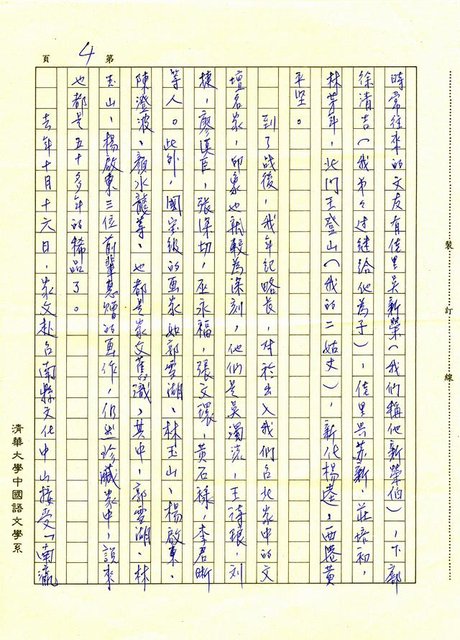 第 4 頁
時常往來的文友有佳里吳新榮（我們稱他新榮伯），下廍
徐清吉（我弟弟過繼給他為子），佳里吳蘇新，莊培初，
林芳年，北門王登山（我的二姑丈），新化楊逵，西港黃
平堅。
到了戰後，我年紀略長，對於出入我們台北家中的文
壇名家，印象也就較為深刻，他們是吳濁流，王詩琅，劉
捷，廖漢臣，張深切，巫永福，張文環，黃石祿，李君晰
等人。此外，國寶級的畫家如郭雪湖、林玉山、楊啟東、
陳澄波、顏水龍等，也都是家父舊識，其中，郭雪湖、林
玉山、楊啟東三位前輩惠贈的畫作，仍然珍藏家中，說來
也都是五十多年的稀品了。
去年十月十六日，家父赴台南縣文化中心接受「南瀛
裝訂線
清華大學中國語文學系